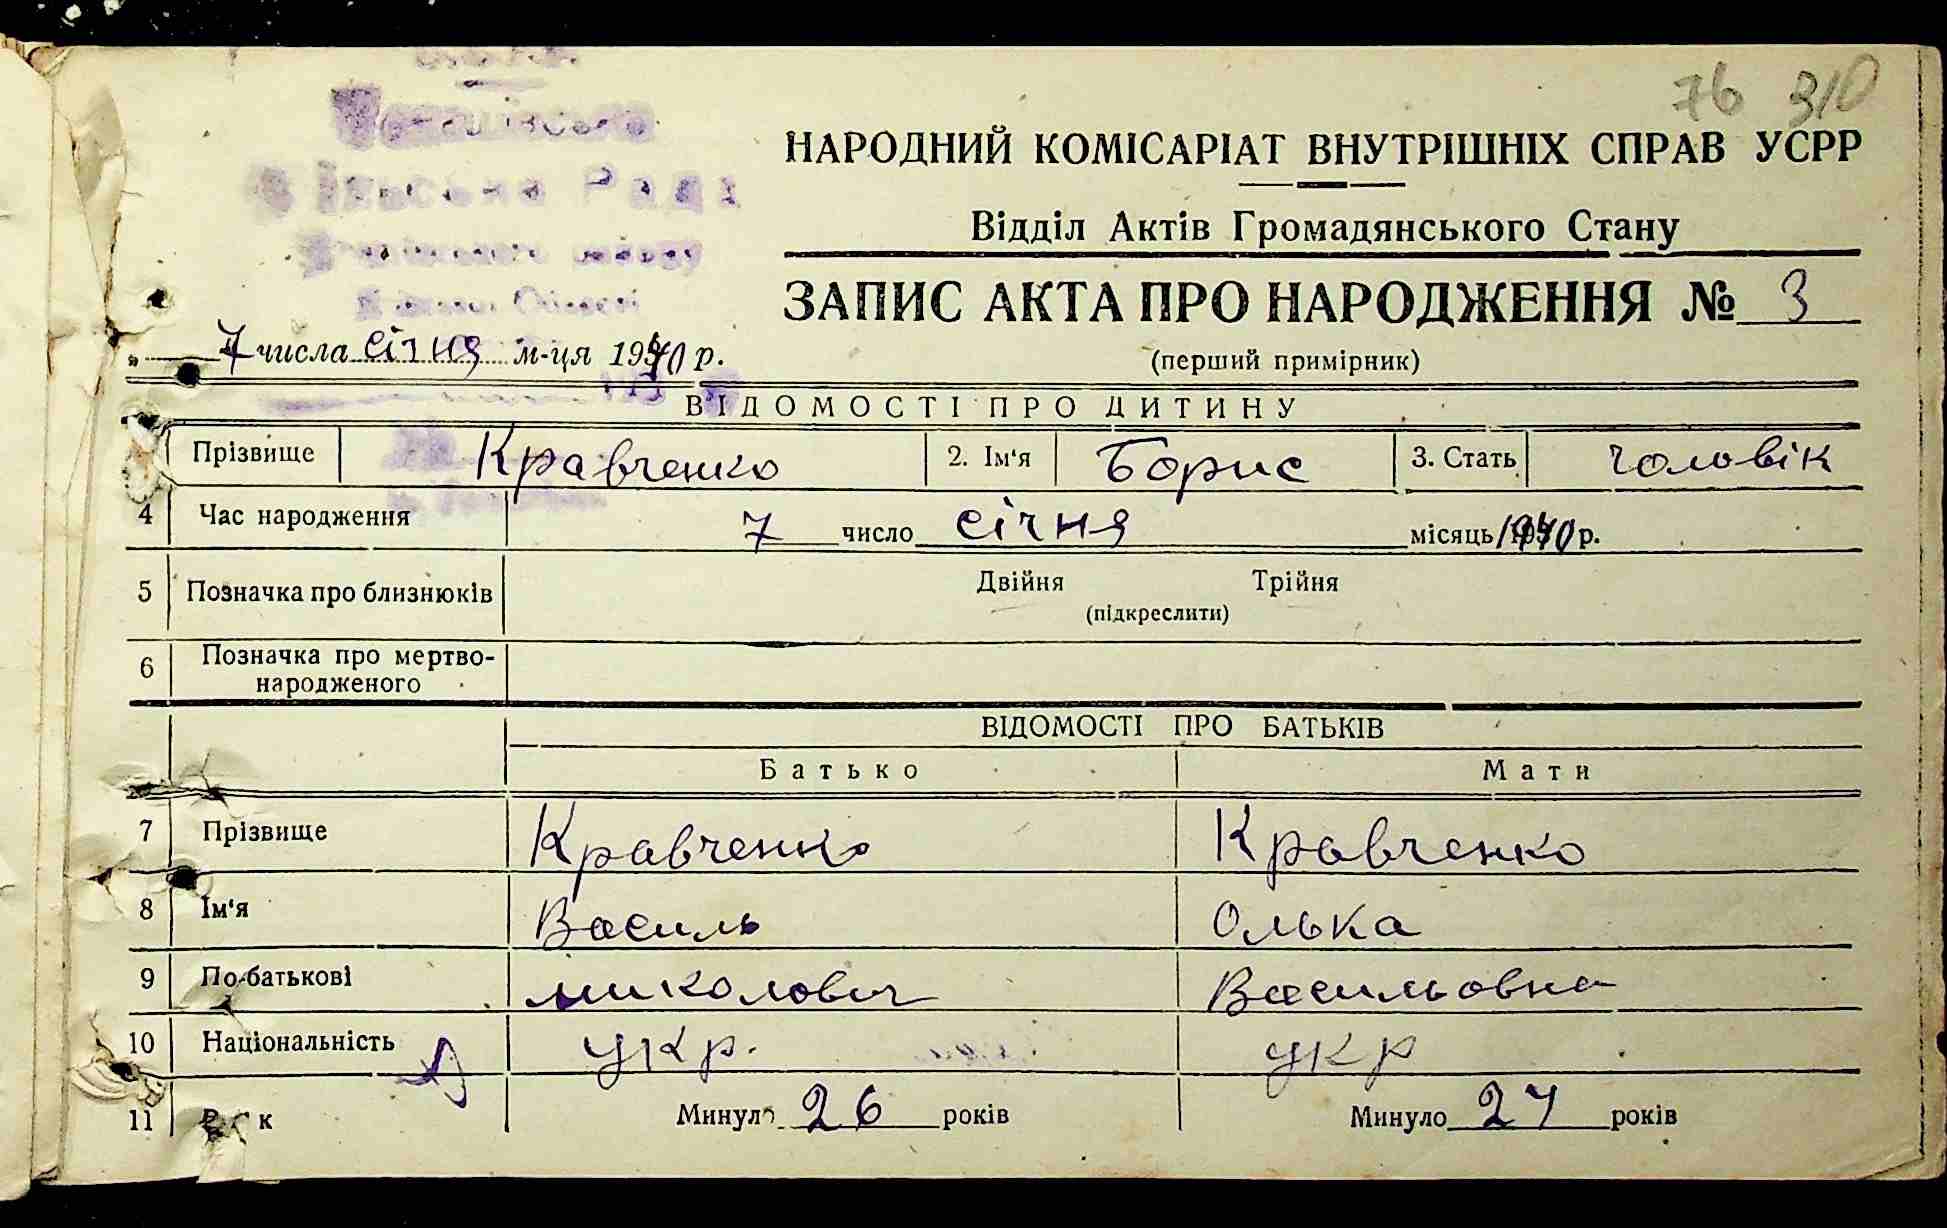 76 310
НАРОДНИЙ КОМІСАРІАТ ВНУТРІШНІХ СПРАВ УСРР
Рада
Відділ Актів Громадянського Стану
ЗАПИС АКТА ПРО НАРОДЖЕННЯ № 3
„ 7 числа січня м-ця 1940 р.
(перший примірник)
ВІДОМОСТІ ПРО ДИТИНУ
Прізвище Кравченко 2. Ім'я Борис 3. Стать чоловік
4 Час народження 7 число січня місяць 1940 р.
5 Позначка про близнюків Двійня Трійня
(підкреслити)
6 Позначка про мертво-
народженого
ВІДОМОСТІ ПРО БАТЬКІВ
Батько Мати
7 Прізвище Кравченко Кравченко
8 Ім'я Василь Олька
9 По-батькові миколович Васильовна
10 Національність укр. укр
11 Минуло 26 років Минуло 27 років